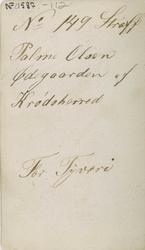 No 1882 - 162
No 149 Straff
Palme Olsen
Ødegaarden af
Krødsherred
For Tyveri